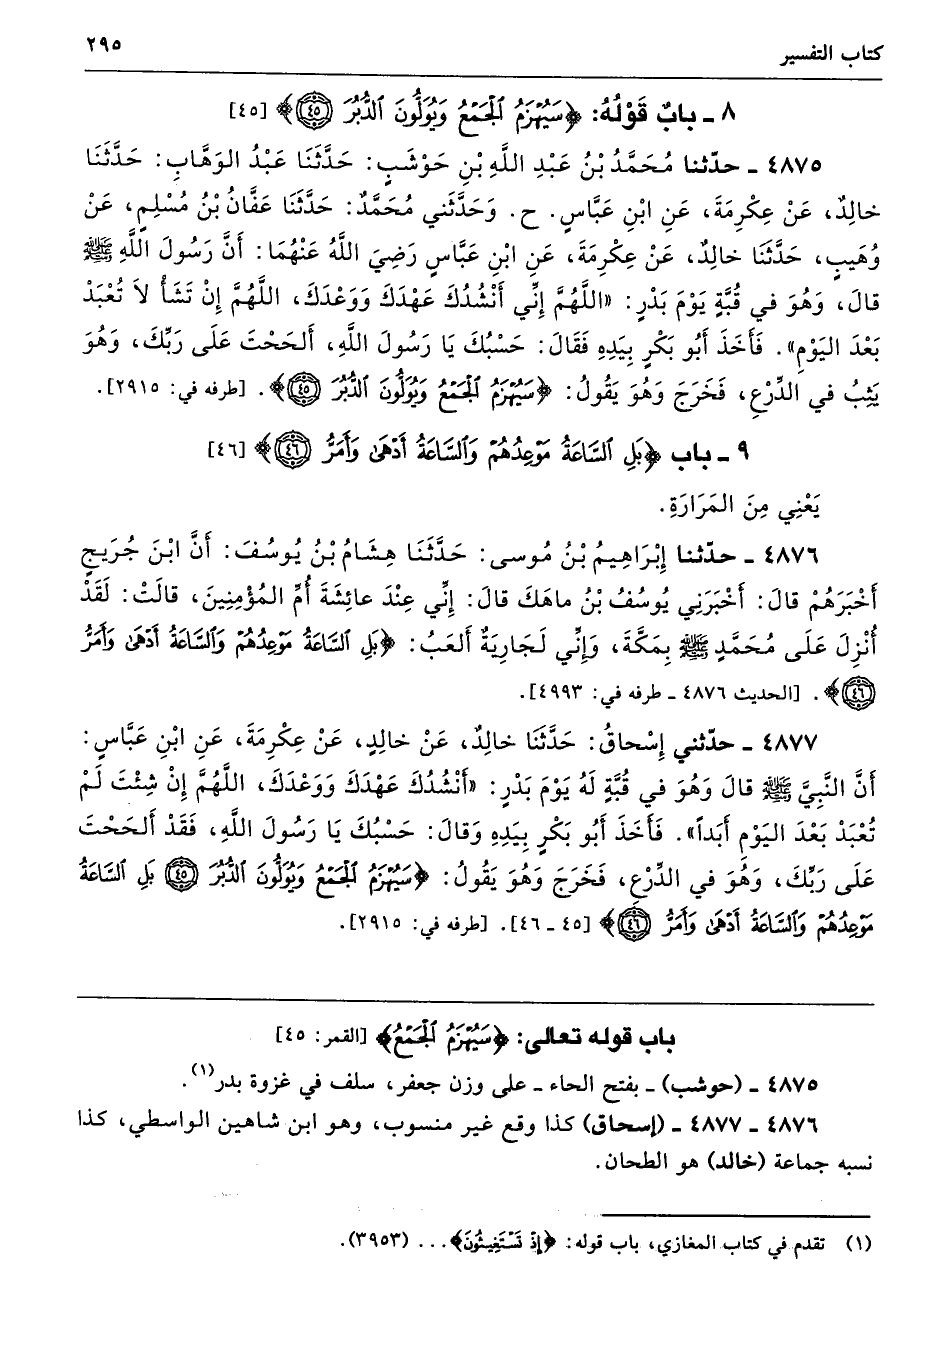 كتاب التفسير
٢٩٥
٨ ـ بابٌ قَوْلُهُ: ﴿سَيُهْزَمُ ٱلْجَمْعُ وَيُوَلُّونَ ٱلدُّبُرَ ٤٥﴾ [٤٥]
٤٨٧٥ ـ حدّثنا مُحَمَّدُ بْنُ عَبْدِ اللَّهِ بْنِ حَوْشَبٍ: حَدَّثَنَا عَبْدُ الوَهَّابِ: حَدَّثَنَا
خالِدٌ، عَنْ عِكْرِمَةَ، عَنِ ابْنِ عَبَّاسٍ. ح. وَحَدَّثَني مُحَمَّدٌ: حَدَّثَنَا عَفَّانُ بْنُ مُسْلِمٍ، عَنْ
وُهَيبٍ، حَدَّثَنَا خالِدٌ، عَنْ عِكْرِمَةَ، عَنِ ابْنِ عَبَّاسٍ رَضِيَ اللَّهُ عَنْهُمَا: أَنَّ رَسُولَ اللَّهِ ﷺ
قالَ، وَهُوَ في قُبَّةٍ يَوْمَ بَدْرٍ: «اللَّهُمَّ إِنِّي أَنْشُدُكَ عَهْدَكَ وَوَعْدَكَ، اللَّهُمَّ إِنْ تَشَأْ لاَ تُعْبَدْ
بَعْدَ اليَوْمِ». فَأَخَذَ أَبُو بَكْرٍ بِيَدِهِ فَقَالَ: حَسْبُكَ يَا رَسُولَ اللَّهِ، أَلحَحْتَ عَلَى رَبِّكَ، وَهُوَ
يَثِبُ في الدِّرْعِ، فَخَرَجَ وَهُوَ يَقُولُ: ﴿سَيُهْزَمُ ٱلْجَمْعُ وَيُوَلُّونَ ٱلدُّبُرَ ٤٥﴾. [طرفه في: ٢٩١٥].
٩ ـ باب ﴿بَلِ ٱلسَّاعَةُ مَوْعِدُهُمْ وَٱلسَّاعَةُ أَدْهَىٰ وَأَمَرُّ ٤٦﴾ [٤٦]
يَعْنِي مِنَ المَرَارَةِ.
٤٨٧٦ ـ حدّثنا إِبْرَاهِيمُ بْنُ مُوسى: حَدَّثَنَا هِشَامُ بْنُ يُوسُفَ: أَنَّ ابْنَ جُرَيجٍ
أَخْبَرَهُمْ قالَ: أَخْبَرَنِي يُوسُفُ بْنُ ماهَكَ قالَ: إِنِّي عِنْدَ عائِشَةَ أُمِّ المُؤْمِنِينَ، قالَتْ: لَقَدْ
أُنْزِلَ عَلَى مُحَمَّدٍ ﷺ بِمَكَّةَ، وَإِنِّي لَجَارِيَةٌ أَلعَبُ: ﴿بَلِ ٱلسَّاعَةُ مَوْعِدُهُمْ وَٱلسَّاعَةُ أَدْهَىٰ وَأَمَرُّ
٤٦﴾. [الحديث ٤٨٧٦ ـ طرفه في: ٤٩٩٣].
٤٨٧٧ ـ حدّثني إِسْحاقُ: حَدَّثَنَا خالِدٌ، عَنْ خالِدٍ، عَنْ عِكْرِمَةَ، عَنِ ابْنِ عَبَّاسٍ:
أَنَّ النَّبِيَّ ﷺ قالَ وَهُوَ في قُبَّةٍ لَهُ يَوْمَ بَدْرٍ: «أَنْشُدُكَ عَهْدَكَ وَوَعْدَكَ، اللَّهُمَّ إِنْ شِئْتَ لَمْ
تُعْبَدْ بَعْدَ اليَوْمِ أَبَداً». فَأَخَذَ أَبُو بَكْرٍ بِيَدِهِ وَقالَ: حَسْبُكَ يَا رَسُولَ اللَّهِ، فَقَدْ أَلحَحْتَ
عَلَى رَبِّكَ، وَهُوَ في الدِّرْعِ، فَخَرَجَ وَهُوَ يَقُولُ: ﴿سَيُهْزَمُ ٱلْجَمْعُ وَيُوَلُّونَ ٱلدُّبُرَ ٤٥ بَلِ ٱلسَّاعَةُ
مَوْعِدُهُمْ وَٱلسَّاعَةُ أَدْهَىٰ وَأَمَرُّ ٤٦﴾ [٤٥ ـ ٤٦]. [طرفه في: ٢٩١٥].
باب قوله تعالى: ﴿سَيُهْزَمُ ٱلْجَمْعُ﴾ [القمر: ٤٥]
٤٨٧٥ ـ (حوشب) ـ بفتح الحاء ـ على وزن جعفر، سلف في غزوة بدر(١).
٤٨٧٦ ـ ٤٨٧٧ ـ (إسحاق) كذا وقع غير منسوب، وهو ابن شاهين الواسطي، كذا
نسبه جماعة (خالد) هو الطحان.
(١) تقدم في كتاب المغازي، باب قوله: ﴿إِذْ تَسْتَغِيثُونَ﴾... (٣٩٥٣).